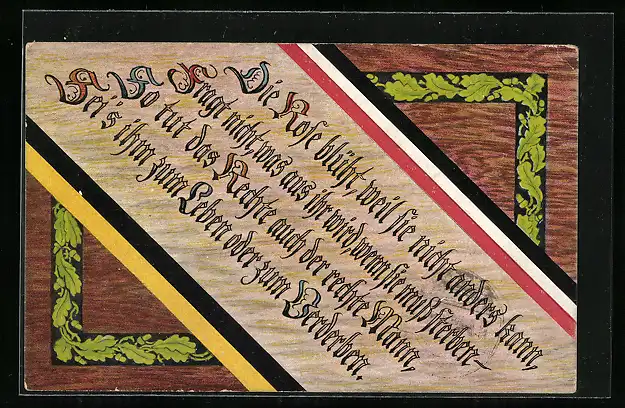 Die Rose blüht, weil sie nicht anders kann,
Fragt nicht, was aus ihr wird wenn sie muß sterben –
So tut das Rechte auch der rechte Mann,
Sei's ihm zum Leben oder zum Verderben.